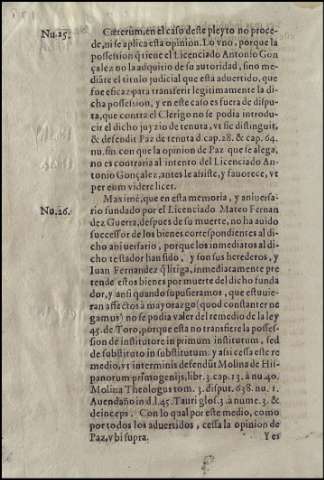 Nu.25. Cæterum, en el caso deste pleyto no proce-
de, ni se aplica esta opinion. Lo vno, porque la
possession q̃ tiene el Licenciado Antonio Gon
çalez no la adquirio de su autoridad, sino me-
diãte el titulo judicial que està aduertido, que
fue eficaz para transferir legitimamente la di-
cha possession, y en este caso es fuera de dispu-
ta, que contra el Clerigo no se podia introdu-
cir el dicho juyzio de tenuta, vt sic distinguit,
& defendit Paz de tenuta d. cap. 28. & cap. 64.
nu. fin con que la opinion de Paz que se alega,
no es contraria al intento del Licenciado An-
tonio Gonçalez, antes le assiste, y fauorece, vt
per eum videre licet.
Nu.26. Maximè, que en esta memoria, y aniuersa-
rio fundado por el Licenciado Mateo Fernan
dez Guerra, despues de su muerte, no ha auido
successor de los bienes correspondientes al di-
cho aniuersario, porque los inmediatos al di-
cho testador han sido, y son sus herederos, y
Iuan Fernandez q̃ litiga, inmediatamente pre
tende estos bienes por muerte del dicho funda
dor, y ansi quando supusieramos, que estuuie-
ran affectos a mayorazgo (quod constanter ne
gamus) no se podia valer del remedio de la ley
45. de Toro, porque esta no transfiere la posses-
sion de institutore in primum institutum, sed
de substituto in substitutum. y assi cessa este re
medio, vt interminis defendũt Molina de His-
panorum primogenijs, libr. 3. cap. 13. à nu. 40.
Molina Theologus tom. 3. disput. 638. nu. 1.
Auendaño in d. l. 45. Tauri glos. 3. à nume. 3. &
deinceps. Con lo qual por este medio, como
por todos los aduertidos, cessa la opinion de
Paz, vbi supra. Y es